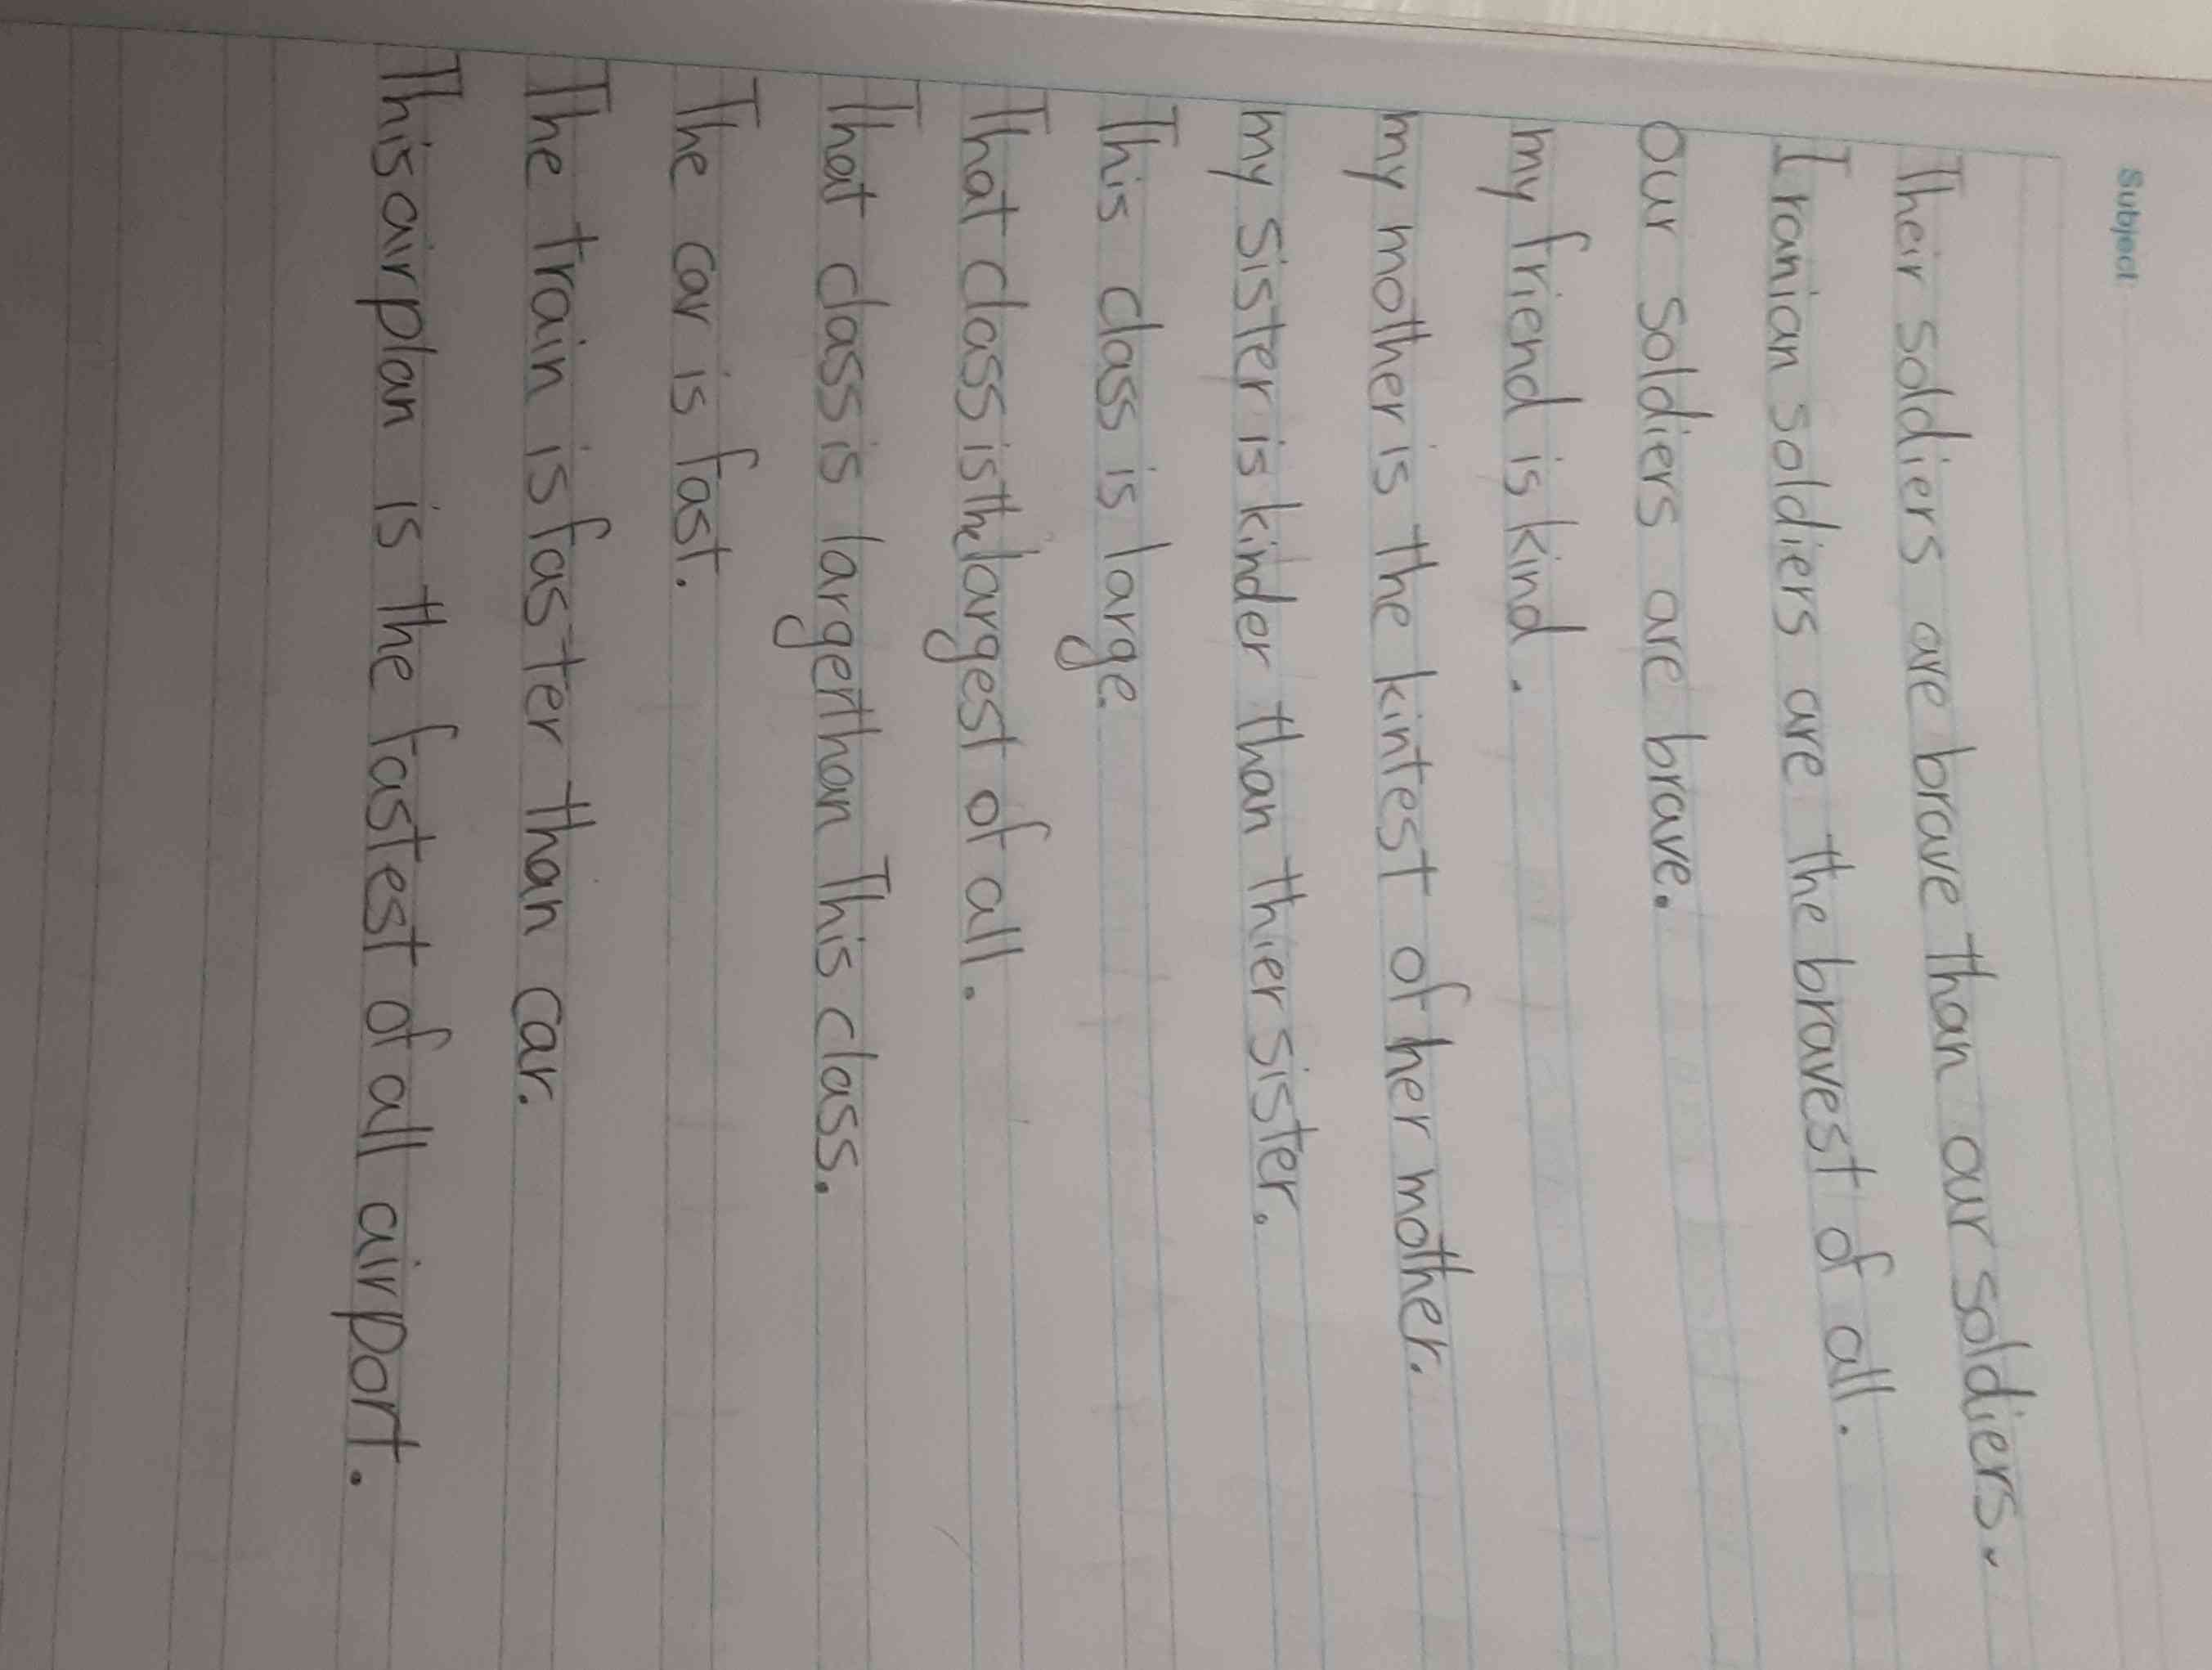 Subject:
Their soldiers are brave than our soldiers.
Iranian soldiers are the bravest of all.
our soldiers are brave.
my friend is kind.
my mother is the kintest of her mother.
my sister is kinder than thier sister.
This class is large.
That class is the largest of all.
That class is larger than This class.
The car is fast.
The train is faster than car.
This airplan is the fastest of all airport.